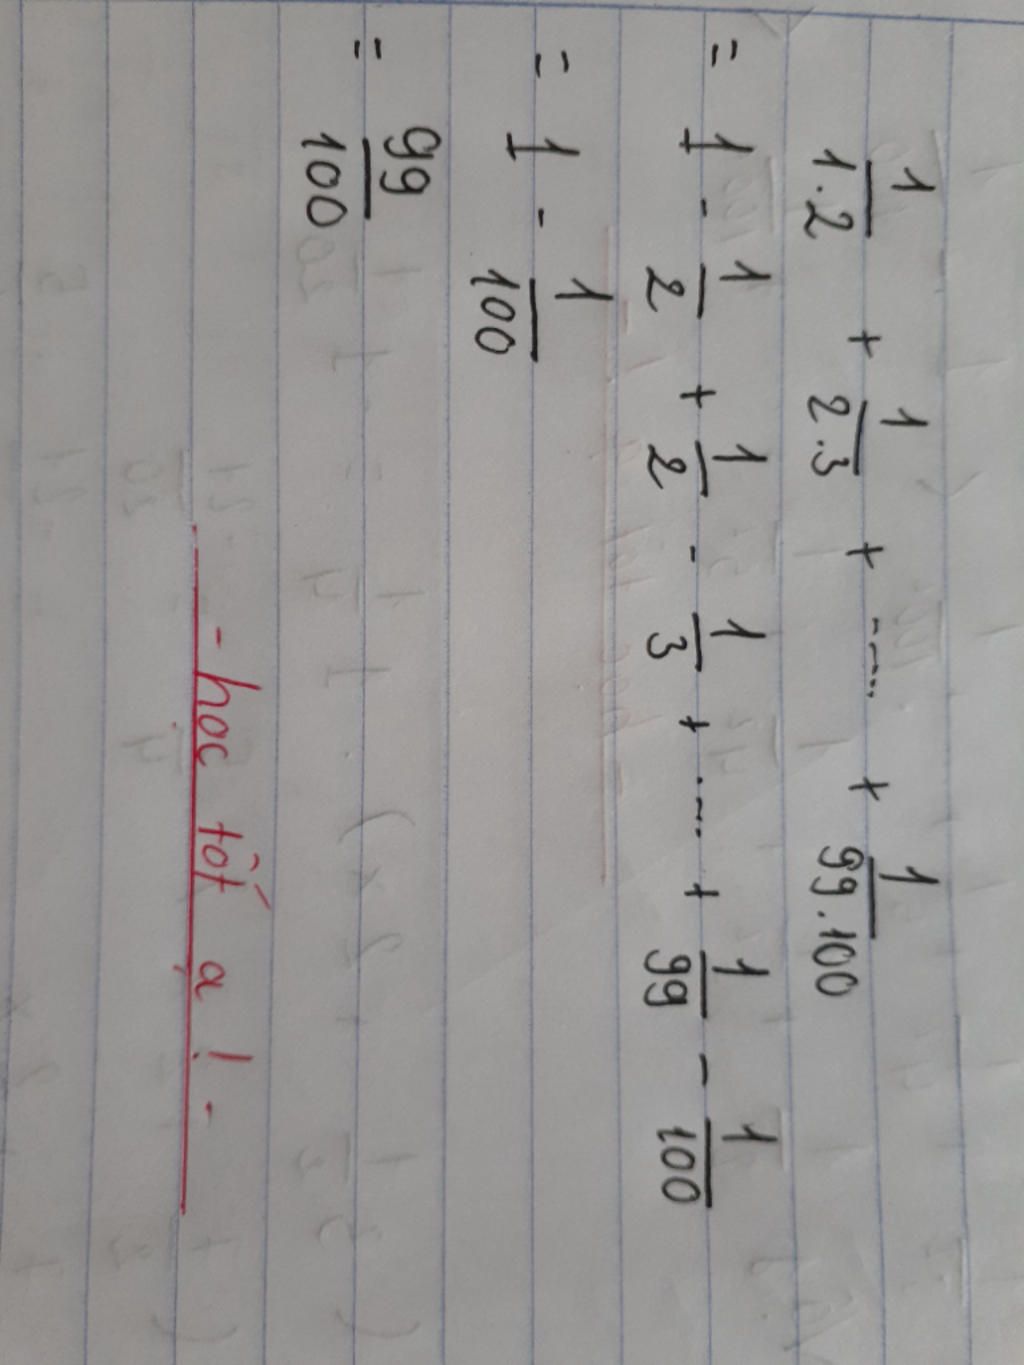 1/1.2 + 1/2.3 + ..... + 1/99.100
= 1 - 1/2 + 1/2 - 1/3 + ..... + 1/99 - 1/100
= 1 - 1/100
= 99/100
- học tốt ạ! -